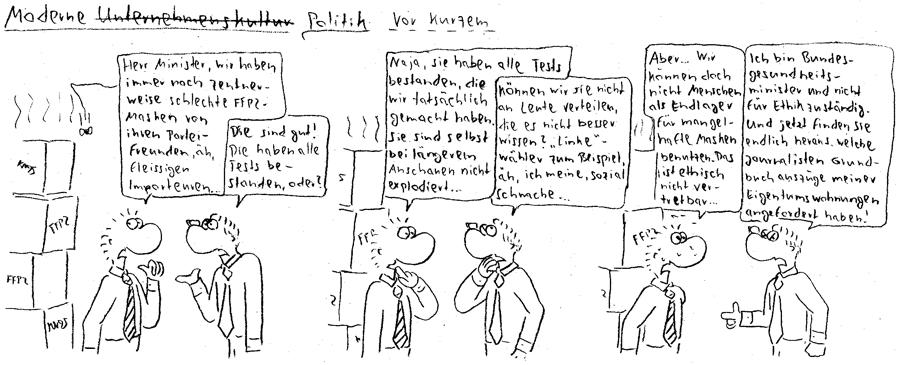 Moderne Unternehmenskultur Politik vor kurzem
Herr Minister, wir haben
immer noch zentner-
weise schlechte FFP2-
Masken von
ihren Partei-
Freunden, äh,
fleissigen
Importeuren...
Die sind gut!
Die haben alle
Tests be-
standen, oder?
KN95
FFP2
FFP2
KN95
Naja, sie haben alle Tests
bestanden, die
wir tatsächlich
gemacht haben.
Sie sind selbst
bei längerem
Anschauen nicht
explodiert...
können wir sie nicht
an Leute verteilen,
die es nicht besser
wissen? "Linke"-
wähler zum Beispiel,
äh, ich meine, sozial
schwache...
5
FFP2
2
Aber... Wir
können doch
nicht Menschen
als Endlager
für mangel-
hafte Masken
benutzen. Das
ist ethisch
nicht ver-
tretbar...
Ich bin Bundes-
gesundheits-
minister und nicht
für Ethik zuständig.
Und jetzt finden Sie
endlich heraus, welche
Journalisten Grund-
buchauszüge meiner
Eigentumswohnungen
angefordert haben!
FFP2
2